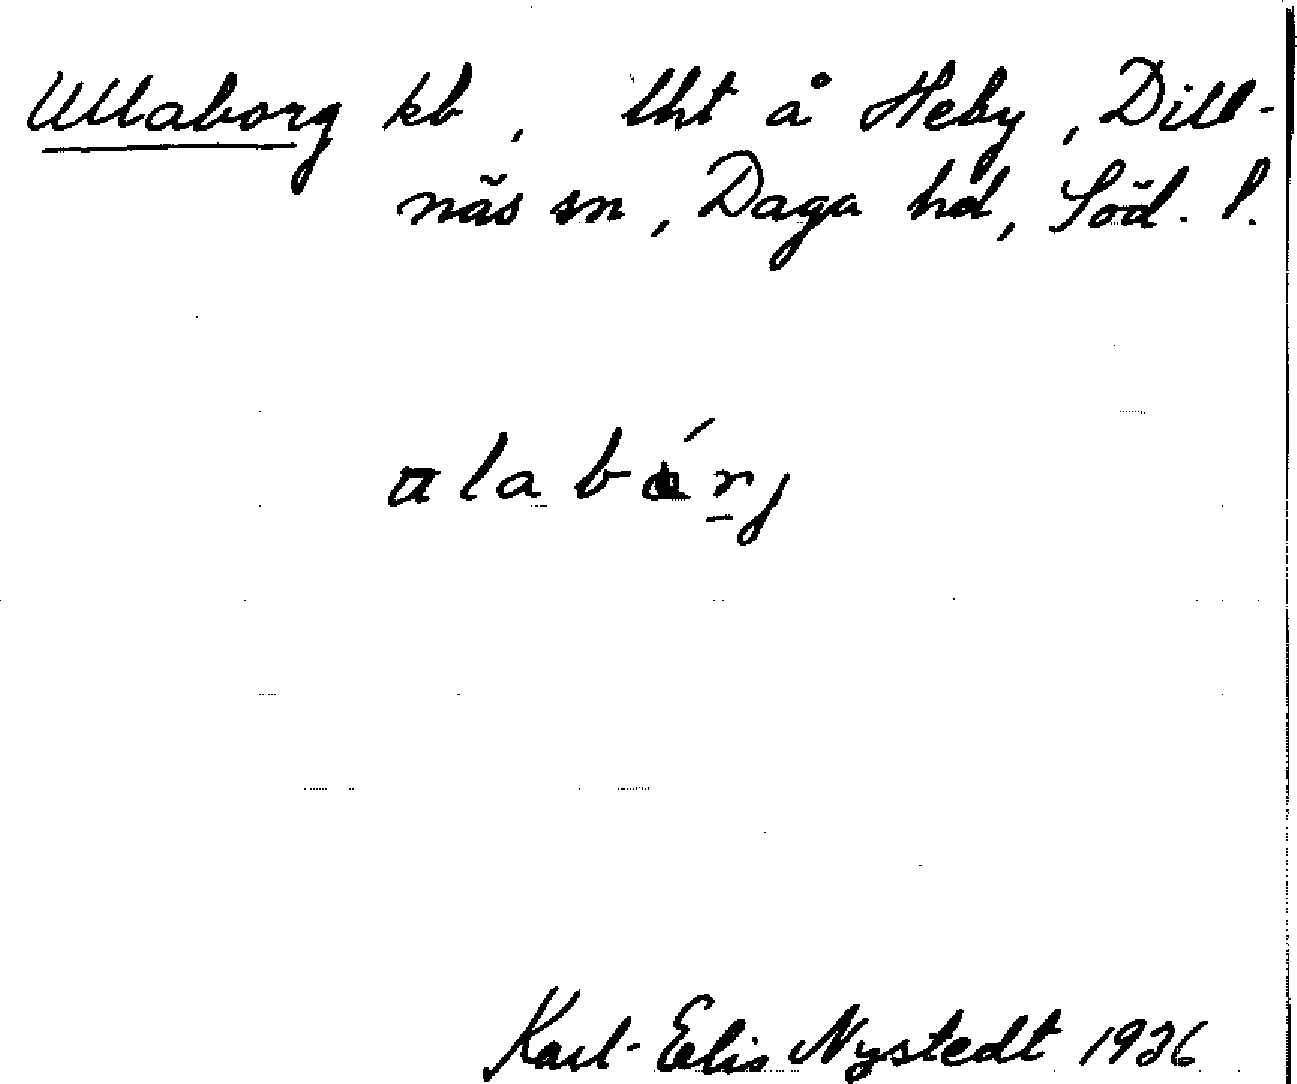 Ullaborg kb, lht å Heby, Dill-
näs sn, Daga hd, Söd. l.
alabórj
Karl-Elis Nystedt 1936